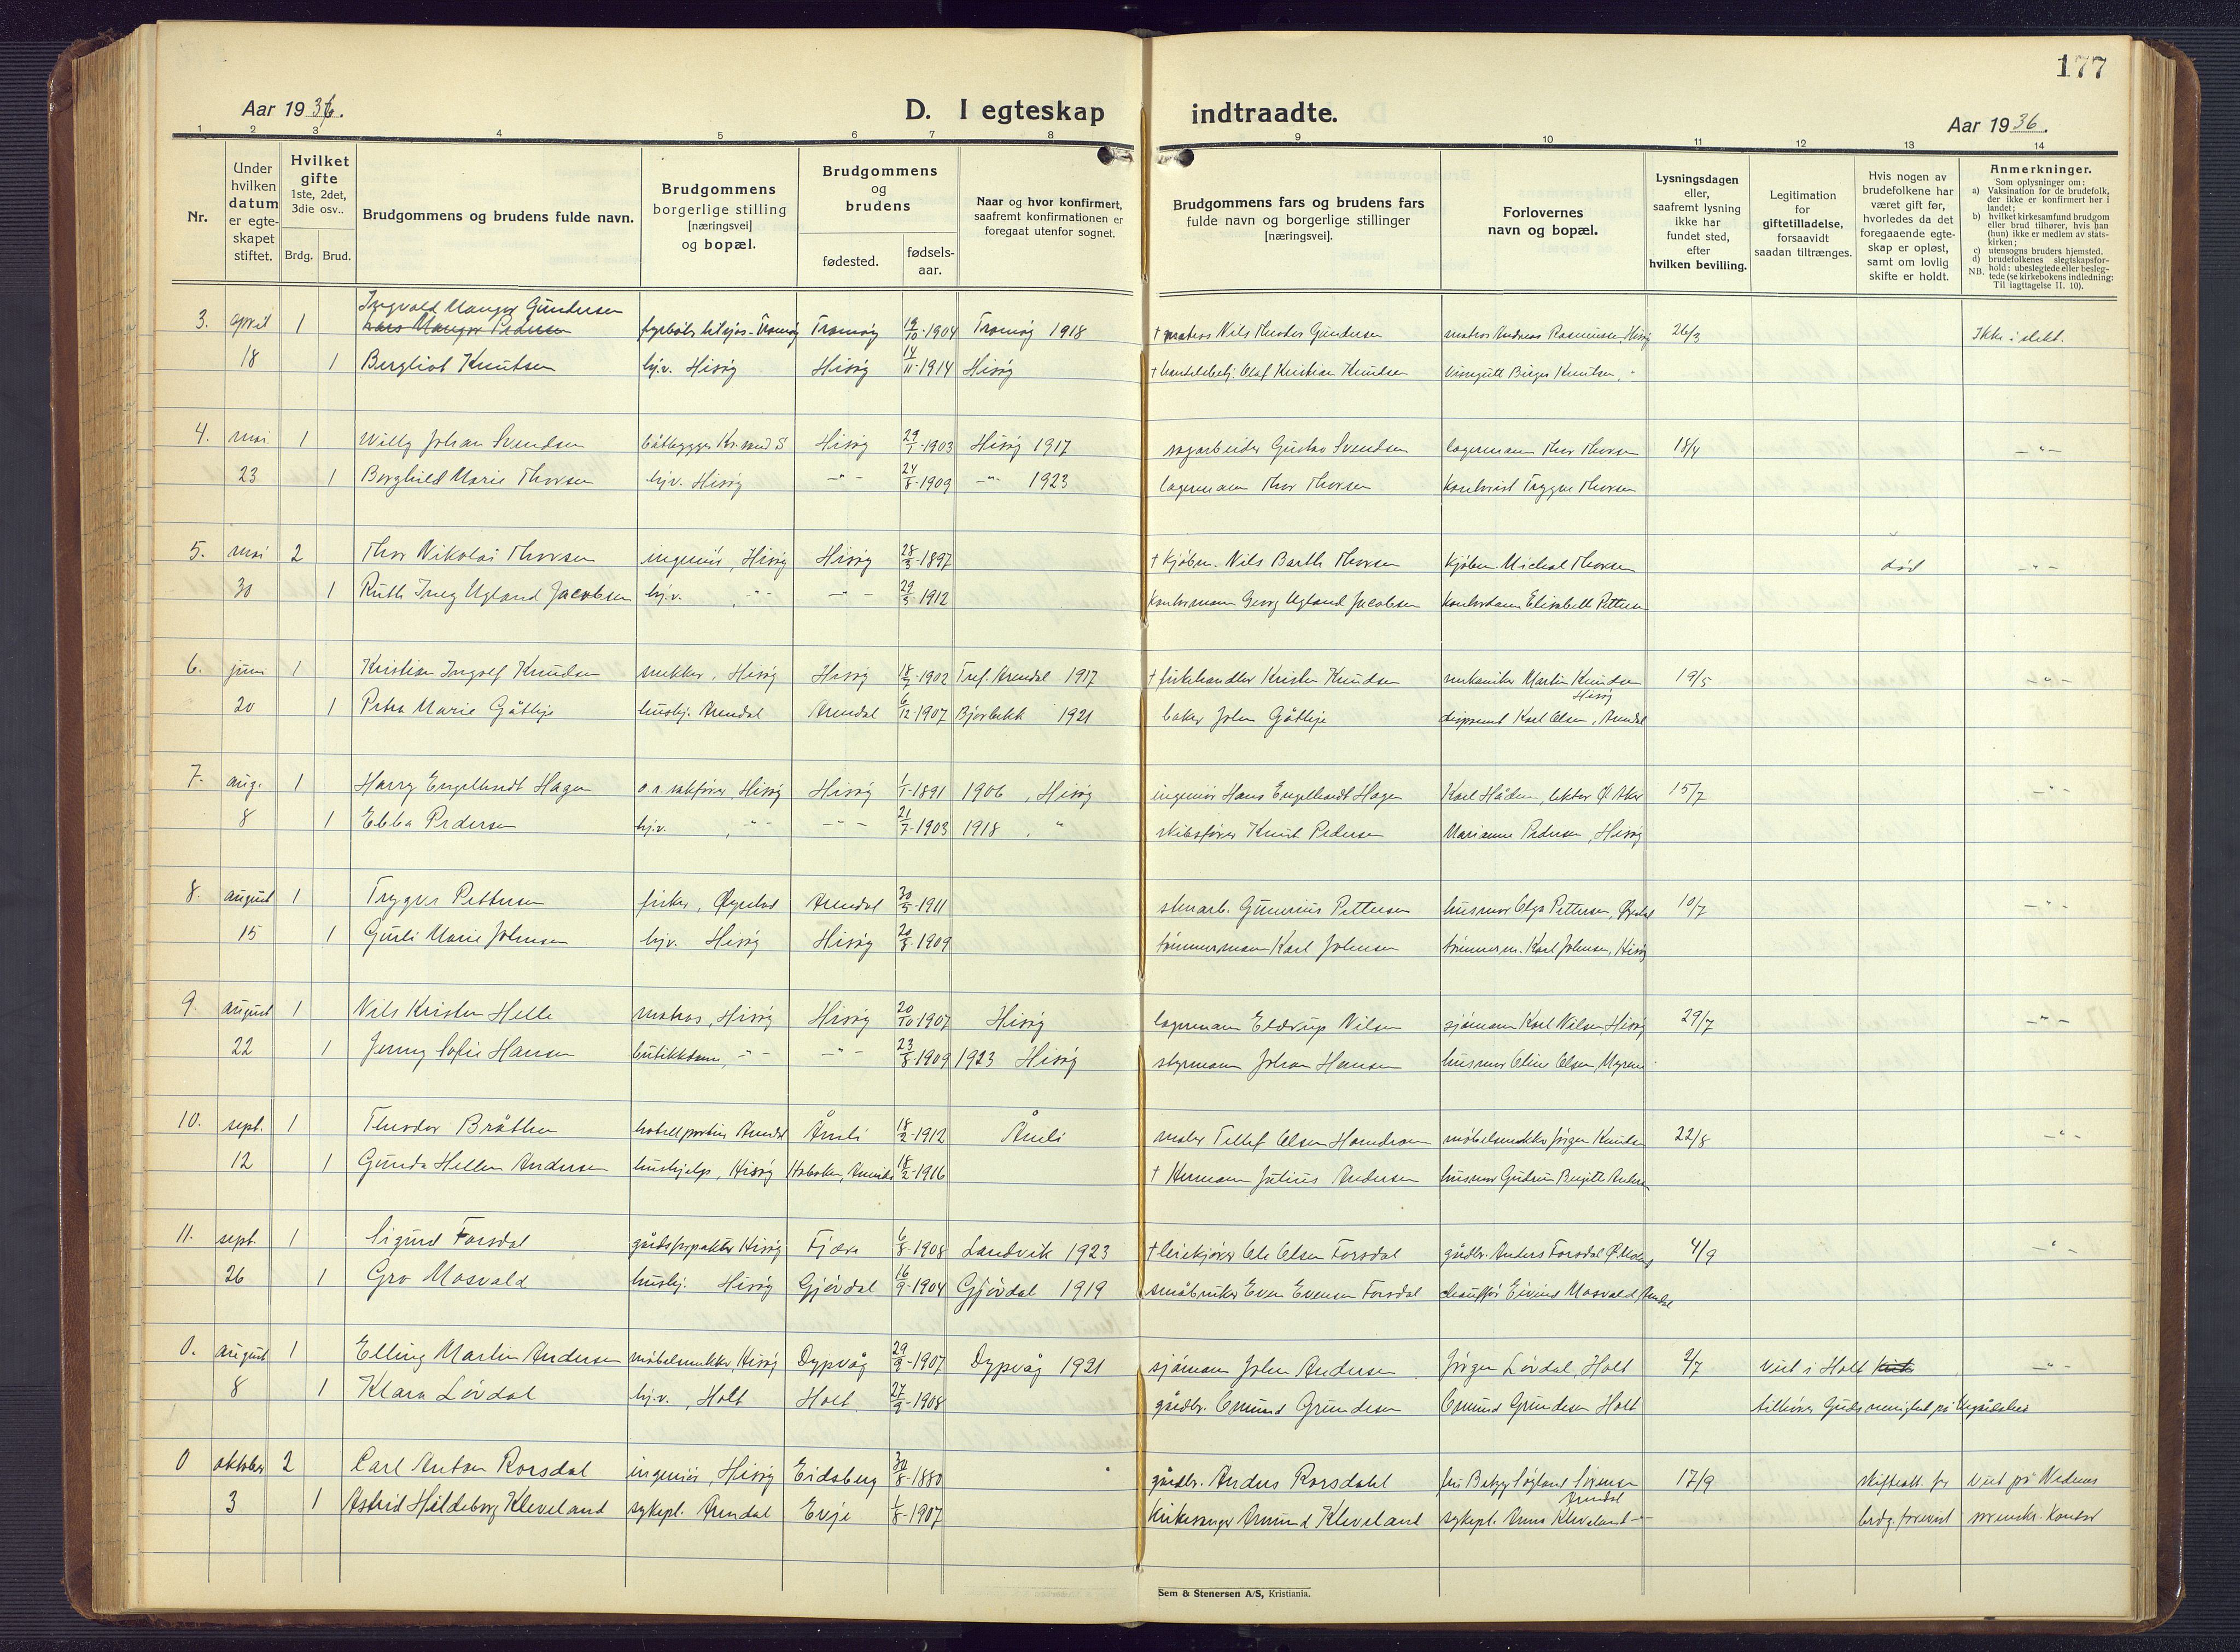 177
Aar 1936.
D. I egteskap indtraadte.
Aar 1936.
1 2 3 4 5 6 7 8 9 10 11 12 13 14
Nr.
Under hvilken datum er egte-skapet stiftet.
Hvilket gifte 1ste, 2det, 3die osv..
Brdg. Brud.
Brudgommens og brudens fulde navn.
Brudgommens borgerlige stilling [næringsvei] og bopæl.
Brudgommens og brudens
fødested. fødsels-aar.
Naar og hvor konfirmert, saafremt konfirmationen er foregaat utenfor sognet.
Brudgommens fars og brudens fars fulde navn og borgerlige stillinger [næringsvei].
Forlovernes navn og bopæl.
Lysningsdagen eller, saafremt lysning ikke har fundet sted, efter hvilken bevilling.
Legitimation for giftetilladelse, forsaavidt saadan tiltrænges.
Hvis nogen av brudefolkene har været gift før, hvorledes da det foregaaende egte-skap er opløst, samt om lovlig skifte er holdt.
Anmerkninger.
Som oplysninger om:
a) Vaksination for de brudefolk, der ikke er konfirmert her i landet;
b) hvilket kirkesamfund brudgom eller brud tilhører, hvis han (hun) ikke er medlem av stats-kirken;
c) utensogns bruders hjemsted.
d) brudefolkenes slegtskapsfor-hold: ubeslegtede eller besleg-tede (se kirkebokens indledning:
NB. Til iagttagelse II. 10).
Ingvald Mauger Gundersen
3. april 1 Tromøy 19/10-1904 Tromøy 1918 † matros Nils Theodor Gundersen matros Andreas Rasmussen, Hisøy 26/3 Ikke i slekt.
18 1 Bergliot Knutsen hj.v. Hisøy Hisøy 14/11-1914 Hisøy † handelsbetj. Olaf Kristian Knudsen visergutt Birger Knutsen, -"-
4. mai 1 Willy Johan Svendsen båtbygger Kr.sand S Hisøy 29/1-1903 Hisøy 1917 sagarbeider Gustav Svendsen lagermann Thor Thorsen 18/4 -"-
23 1 Borghild Marie Thorsen hj.v. Hisøy -"- 24/8-1909 -"- 1923 lagermann Thor Thorsen kontorist Trygve Thorsen
5. mai 2 Thor Nikolai Thorsen ingeniør, Hisøy Hisøy 28/3-1897 † kjøbm. Nils Barth Thorsen kjøbm. Michal Thorsen død -"-
30 1 Ruth Ugland Jacobsen hj.v. -"- -"- 29/3-1912 kontormann Georg Ugland Jacobsen kontordame Elisabeth Pettersen
6. juni 1 Kristian Ingolf Knudsen snekker, Hisøy Hisøy 18/7-1902 Tref. Arendal 1917 † fiskehandler Kristen Knudsen mekaniker Martin Knudsen Hisøy 19/5 -"-
20 1 Petra Marie Gåthje hushj. Arendal Arendal 6/12-1907 Bjorbekk 1921 baker John Gåthje Karl Olsen, Arendal
7. aug. 1 Harry Engelhardt Hagen o.r.sakfører, Hisøy Hisøy 1/1-1891 1906, Hisøy ingeniør Hans Engelhardt Hagen Karl Håden, lektor Ø. Aker 15/7 -"-
8 1 Ebba Pedersen hj.v. -"- -"- 21/7-1903 1918, " skibsfører Knut Pedersen Marianne Pedersen, Hisøy
8. august 1 Trygve Pettersen fisker, Øyestad Arendal 30/5-1911 stenarb. Gunerius Pettersen husmor Olga Pettersen, Øyestad 10/7 -"-
15 1 Gurli Marie Johnsen hj.v. Hisøy Hisøy 20/8-1909 tømmermann Karl Johnsen tømmerm. Karl Johnsen, Hisøy
9. august 1 Nils Kristen Helle matros, Hisøy Hisøy 20/10-1907 Hisøy lagermann Eldrup Nilsen sjømann Karl Nilsen Hisøy 29/7 -"-
22 1 Jenny Sofie Hansen butikkdame, -"- -"- 23/8-1909 1923 Hisøy styrmann Johan Hansen husmor Oline Olsen, Myrene
10. sept. 1 Theodor Bråthen hotellportier Arendal Åmli 18/2-1912 Åmli maler Tellef Olsen møbelsnekker Jørgen Knutsen 22/8 -"-
12 1 Gunda Hellen Andersen hushjelp, Hisøy Hoboken, Amerika 18/2-1916 † Herman Julius Andersen husmor Gudrun Birgitte Andersen
11. sept. 1 Sigurd Forsdal gårdsforpakter Hisøy Fjære 6/8-1908 Landvik 1923 † Ole Olsen Forsdal gårdbr. Anders Forsdal 4/9 -"-
26 1 Gro Mosvald hushj. Hisøy Gjøvdal 16/9-1904 Gjøvdal 1919 småbruker Even Evensen Forsdal chauffør Eivind Mosvald, Arendal
0. august 1 Elling Martin Andersen møbelsnekker, Hisøy Dypvåg 29/9-1907 Dypvåg 1921 sjømann John Andersen Jørgen Løvdal, Holt 2/7 viet i Holt -"-
8 1 Klara Løvdal hj.v., Holt Holt 27/9-1908 gårdbr. Omund Grundesen Omund Grundesen Holt tilhører Guds menighet på
0 oktober 2 Carl Anton Rorsdal ingeniør, Hisøy Eidsberg 30/8-1880 gårdbr. Anders Rorsdahl fru Betzy Søgland Sørensen Arendal 17/9 skifteatt. for viet på Nedenes
3 1 Astrid Hildeborg Kleveland sykepl. Arendal Evje 1/8-1907 kirkesanger Amund Kleveland sykepl. Anna Kleveland -"- brdg. forevist sorenskr. kontor
Sem & Stenersen A/S, Kristiania.